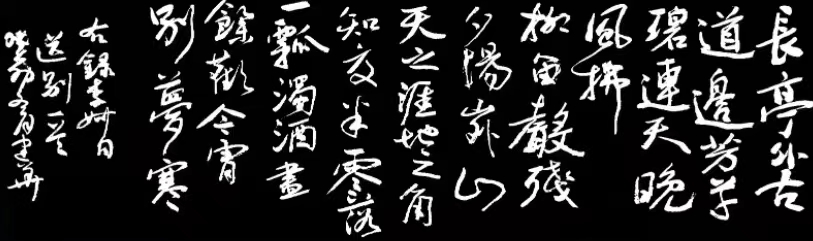 長亭外古
道邊芳草
碧連天晚
風拂
柳笛聲殘
夕陽山外山
天之涯地之角
知交半零落
一瓢濁酒盡
餘歡今宵
別夢寒
右錄李叔同
送別一首
癸卯